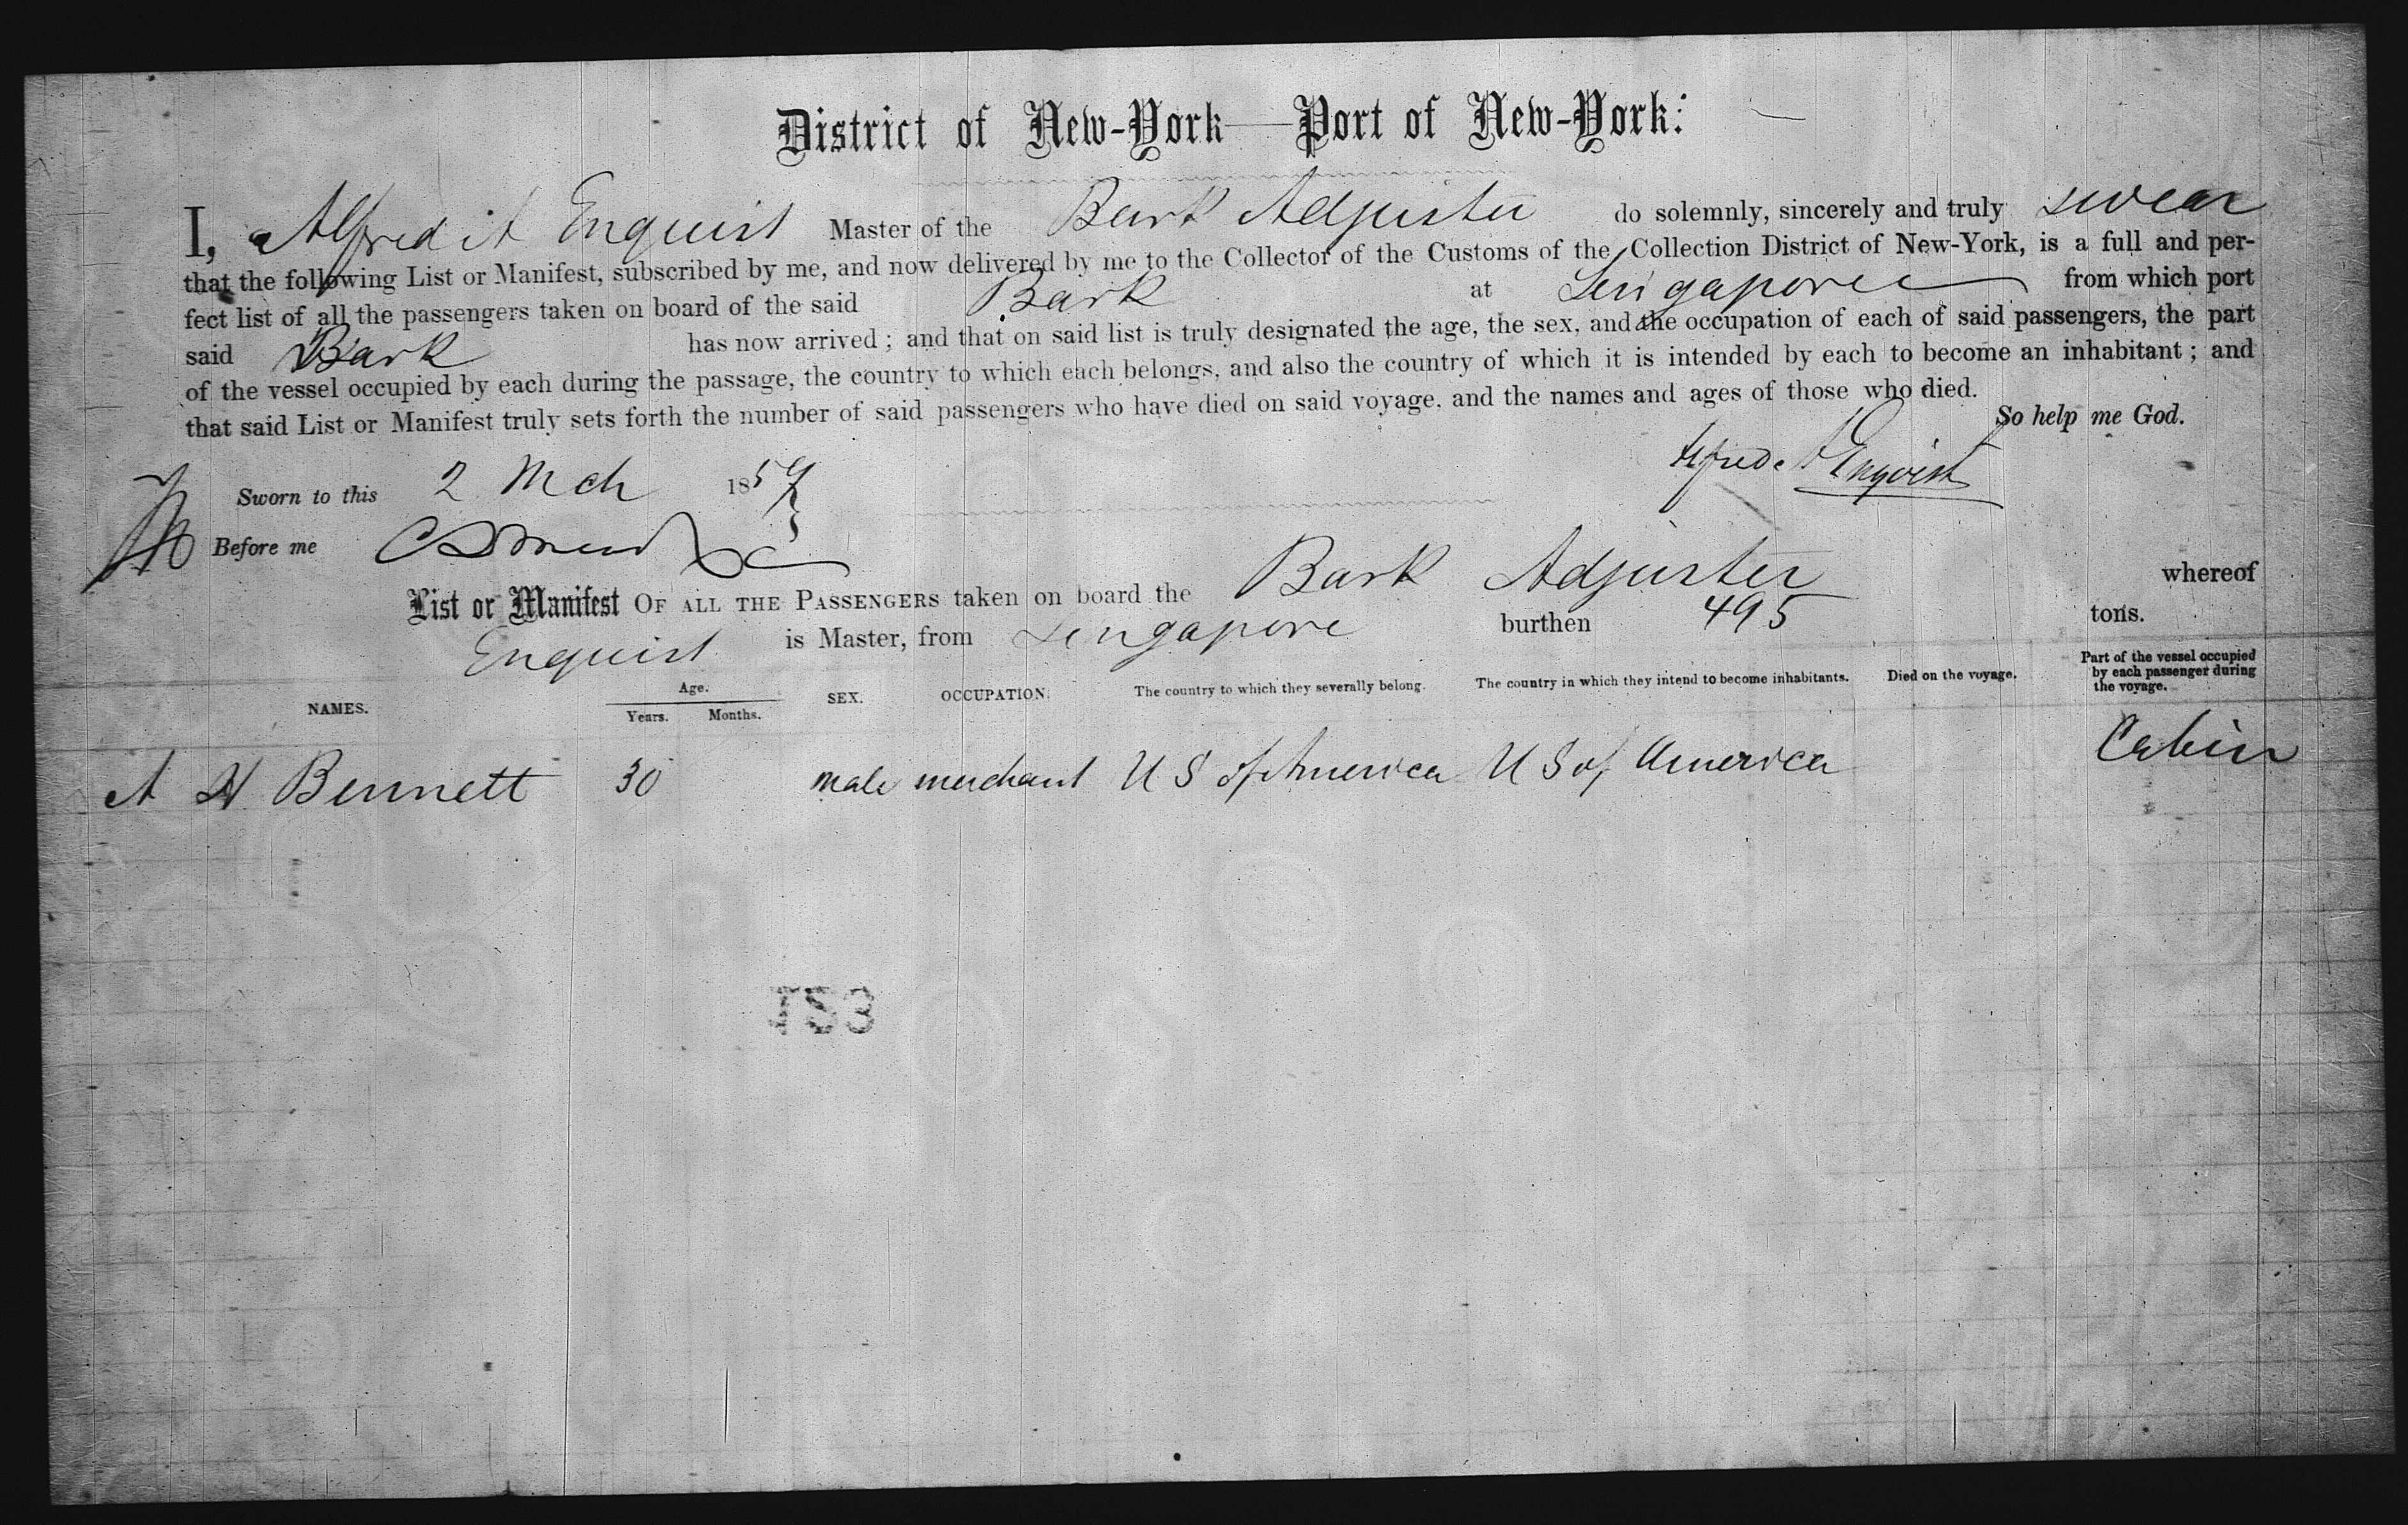 District of New-York—Port of New-York:
I, Alfred A Enquist Master of the Bark Adjuster do solemnly, sincerely and truly swear
that the following List or Manifest, subscribed by me, and now delivered by me to the Collector of the Customs of the Collection District of New-York, is a full and per-
fect list of all the passengers taken on board of the said Bark at Singapore from which port
said Bark has now arrived; and that on said list is truly designated the age, the sex, and the occupation of each of said passengers, the part
of the vessel occupied by each during the passage, the country to which each belongs, and also the country of which it is intended by each to become an inhabitant; and
that said List or Manifest truly sets forth the number of said passengers who have died on said voyage, and the names and ages of those who died.
So help me God.
Alfred A Enqvist
Sworn to this 2 Mch 1857
Before me
List or Manifest OF ALL THE PASSENGERS taken on board the Bark Adjuster whereof
Enquist is Master, from Singapore burthen 495 tons.
NAMES. Age. Years. Months. SEX. OCCUPATION. The country to which they severally belong. The country in which they intend to become inhabitants. Died on the voyage. Part of the vessel occupied by each passenger during the voyage.
A H Bennett 30 male merchant U S of America U S of America Cabin
153